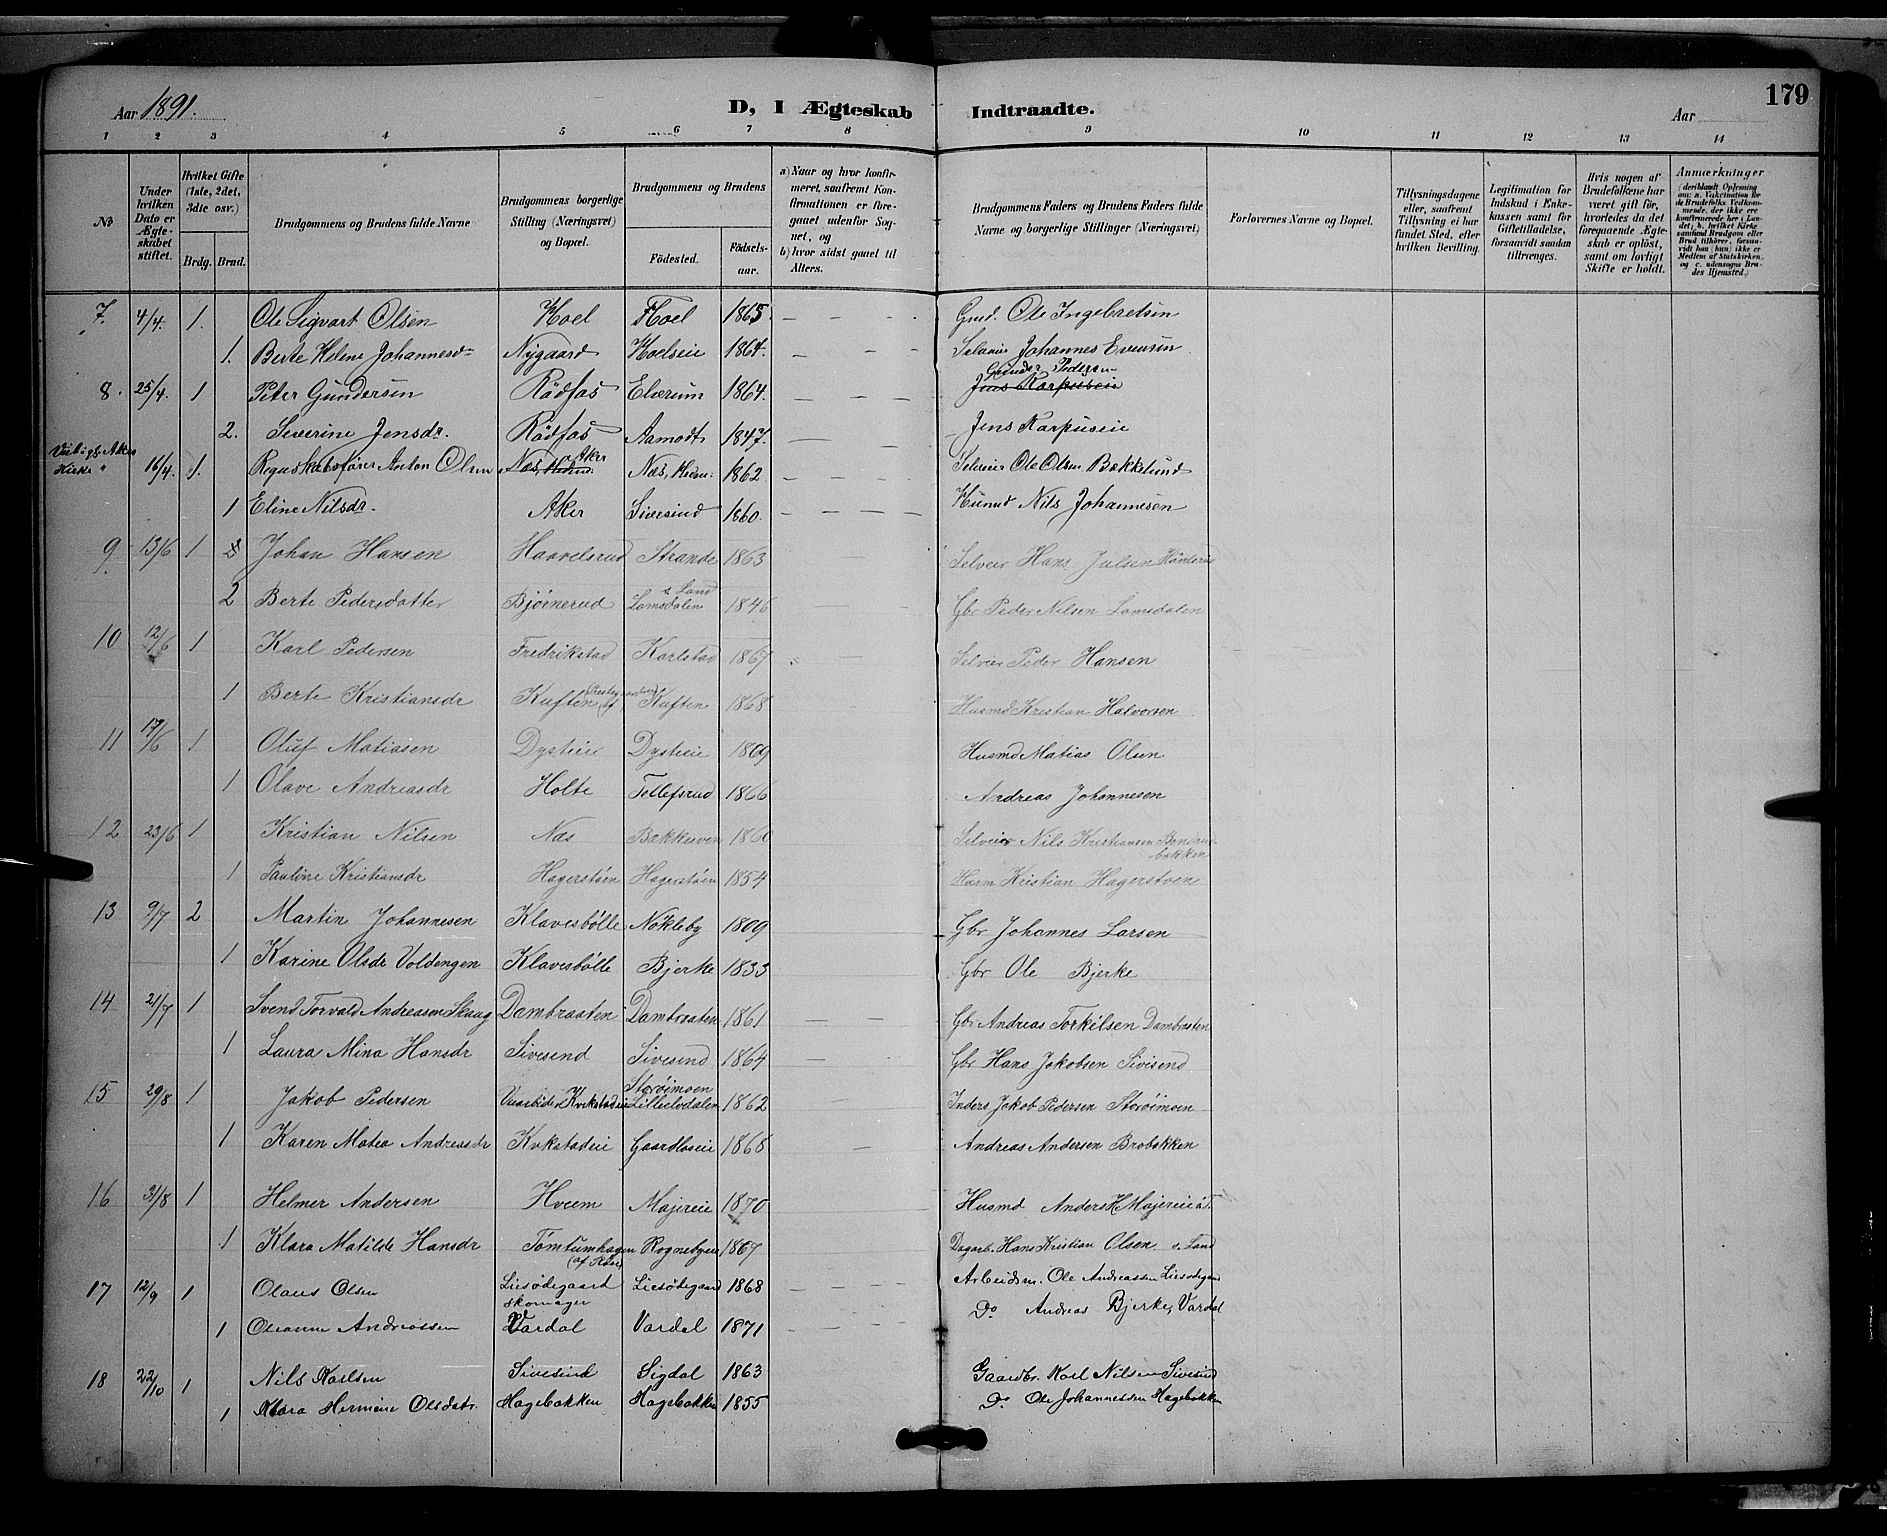 Aar 1891.
D, I Ægteskab Indtraadte.
Aar
179
1 2 3 4 5 6 7 8 9 10 11 12 13 14
№
Under hvilken Dato er Ægteskabet stiftet.
Hvilket Gifte (1ste, 2det, 3die osv.)
Brdg. Brud.
Brudgommens og Brudens fulde Navne
Brudgommens borgerlige Stilling (Næringsvei) og Bopæl.
Brudgommens og Brudens
Fødested. Fødselsaar.
a) Naar og hvor konfirmeret, saafremt Konfirmationen er foregaaet udenfor Sognet, og
b) hvor sidst gaaet til Alters.
Brudgommens Faders og Brudens Faders fulde Navne og borgerlige Stillinger (Næringsvei)
Forlovernes Navne og Bopæl.
Tillysningsdagene eller, saafremt Tillysning ei har fundet Sted, efter hvilken Bevilling.
Legitimation for Indskud i Enkekassen samt for Giftetilladelse, forsaavidt saadan tiltrænges.
Hvis nogen af Brudefolkene har været gift før, hvorledes da det foregaaende Ægteskab er opløst, samt om lovligt Skifte er holdt.
Anmærkninger
7. 4/4. 1. Ole Sigvart Olsen Hoel Hoel 1865. Gmd. Ole Ingebretsen
1. Berte Helene Johannesdr Nygaard Hoelseie 1864. Selveier Johannes Evensen
8. 25/4. 1 Peter Gundersen Rödfos Elverum 1864. Gunder Pedersen Jens Karpuseie
2. Severine Jensdr. Rödfos Aamodt 1847. Jens Karpuseie
Viet i V. Aker Kirke " 16/4. 1. Regnskabsfører Anton Olsen Næs, Hedm. Aker Næs, Hedm. 1862 Selveier Ole Olsen Bækkelund
1 Eline Nilsdr. Aker Sivesind 1860. Husmd Nils Johannesen
9. 13/6 1 Johan Hansen Haavelsrud Strande 1863 Selveier Hans Julsen
2 Berte Pedersdatter Bjørnerud Lomsdalen S. Land 1846 Gbr Peder Nilsen Lomsdalen
10 12/6 1 Karl Pedersen Fredrikstad Karlstad 1867 Selveier Peder Hansen
1 Berte Kristiansdr Kuften Kuften 1868 Husmd Kristian Halvorsen
11 17/6 1 Oluf Matiasen Dysteie Dysteie 1869 Husmd Matias Olsen
1 Olave Andreasdr Holte Tollefsrud 1866 Andreas Johannesen
12 23/6 1 Kristian Nilsen Næs Bakkesven 1860 Selveier Nils Kristiansen
1 Pauline Kristiansdr Hagerstøen Hagerstøen 1854 Husm Kristian Hagerstoen
13 9/7 2 Martin Johannesen Klavesbølle Nökleby 1809 Gbr Johannes Larsen
1 Karine Olsdr Voldengen Klavesbølle Bjerke 1833 Gbr Ole Bjerke
14 21/7 1 Svend Torvald Andreasen Skaug Dambraaten Dambraaten 1861 Gbr Andreas Torkilsen Dambraaten
1 Laura Mina Hansdr Sivesend Sivesend 1864 Gbr Hans Jakobsen Sivisend
15 29/8 1 Jakob Pedersen Storøimoen Lilleelvedalen 1862 Inders Jakob Pedersen Storøimoen
1 Karen Matea Andreasdr Kvkstadeie Gaardløseie 1868 Andreas Andersen Brobakken
16 31/8 1 Helmer Andersen Hveem Majereie 1870 Husmd Anders H. Majereie
1 Klara Matilde Hansdr Tømtumhagen Rognebyeie 1867 Dagarb. Hans Kristian Olsen. S. Land
17 12/9 1 Olaus Olsen Liesødegaard Skomager Liesødegaard 1868 Arbeidsm. Ole Andreassen Liesødegaard
1 Oleanne Andreassen Vardal Vardal 1871 Do Andreas Bjerke, Vardal
18 22/10 1 Nils Karlsen Sivesind Sigdal 1863 Gaardbr. Karl Nilsen Sivesind
1 Klara Hermine Olsdatr. Hagebakken Hagebakken 1855 Do Ole Johannessen Hagebakken